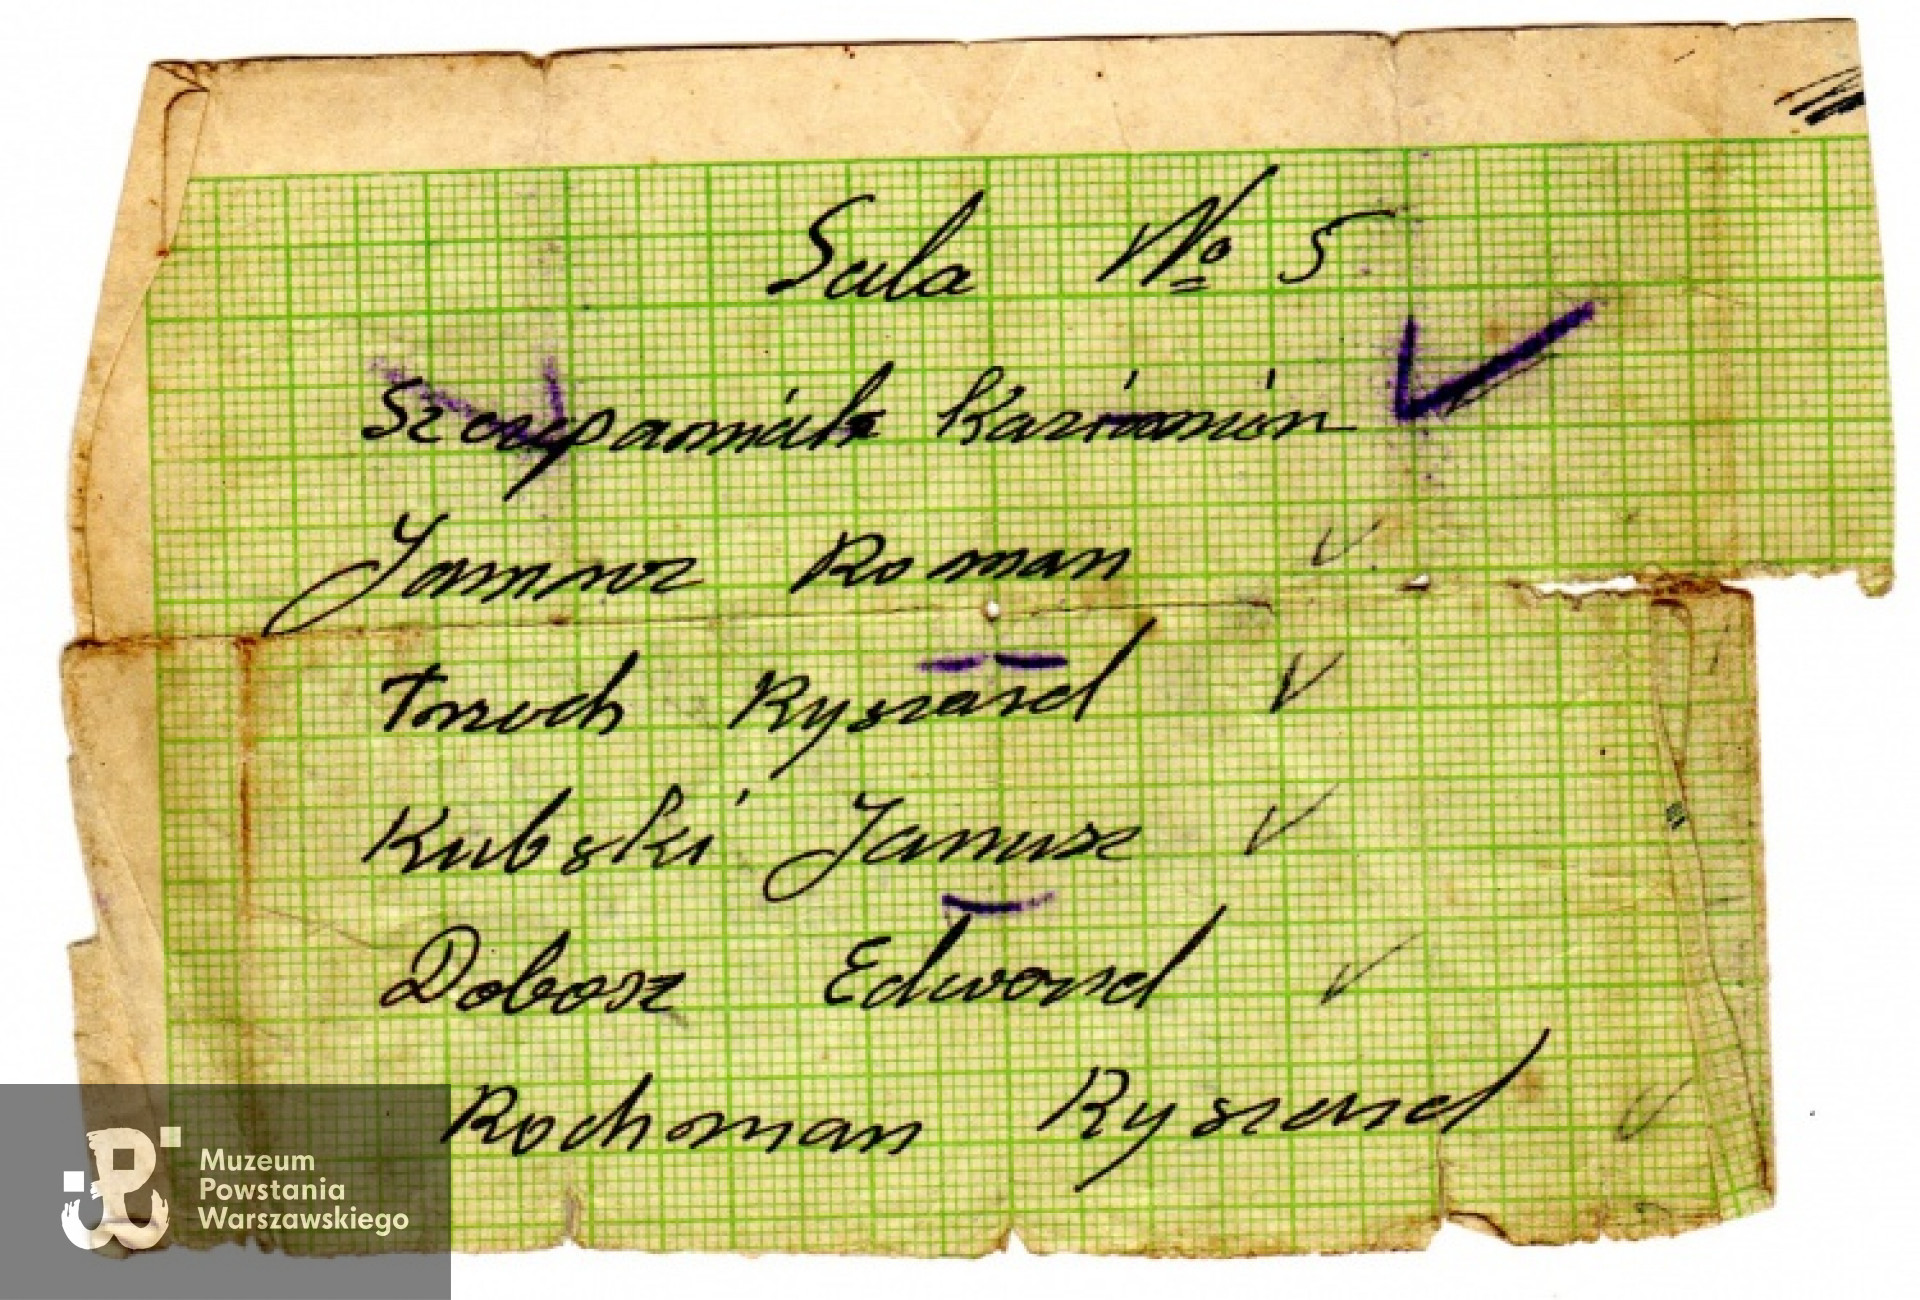 Sala № 5
Szczepaniak Kazimierz
Roman
Ryszard
Kubski Janusz
Dobosz Edward
Rochman Ryszard
Muzeum
Powstania
Warszawskiego